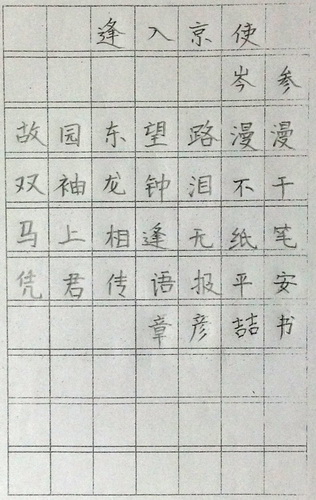 逢入京使
岑参
故园东望路漫漫
双袖龙钟泪不干
马上相逢无纸笔
凭君传语报平安
章彦喆书